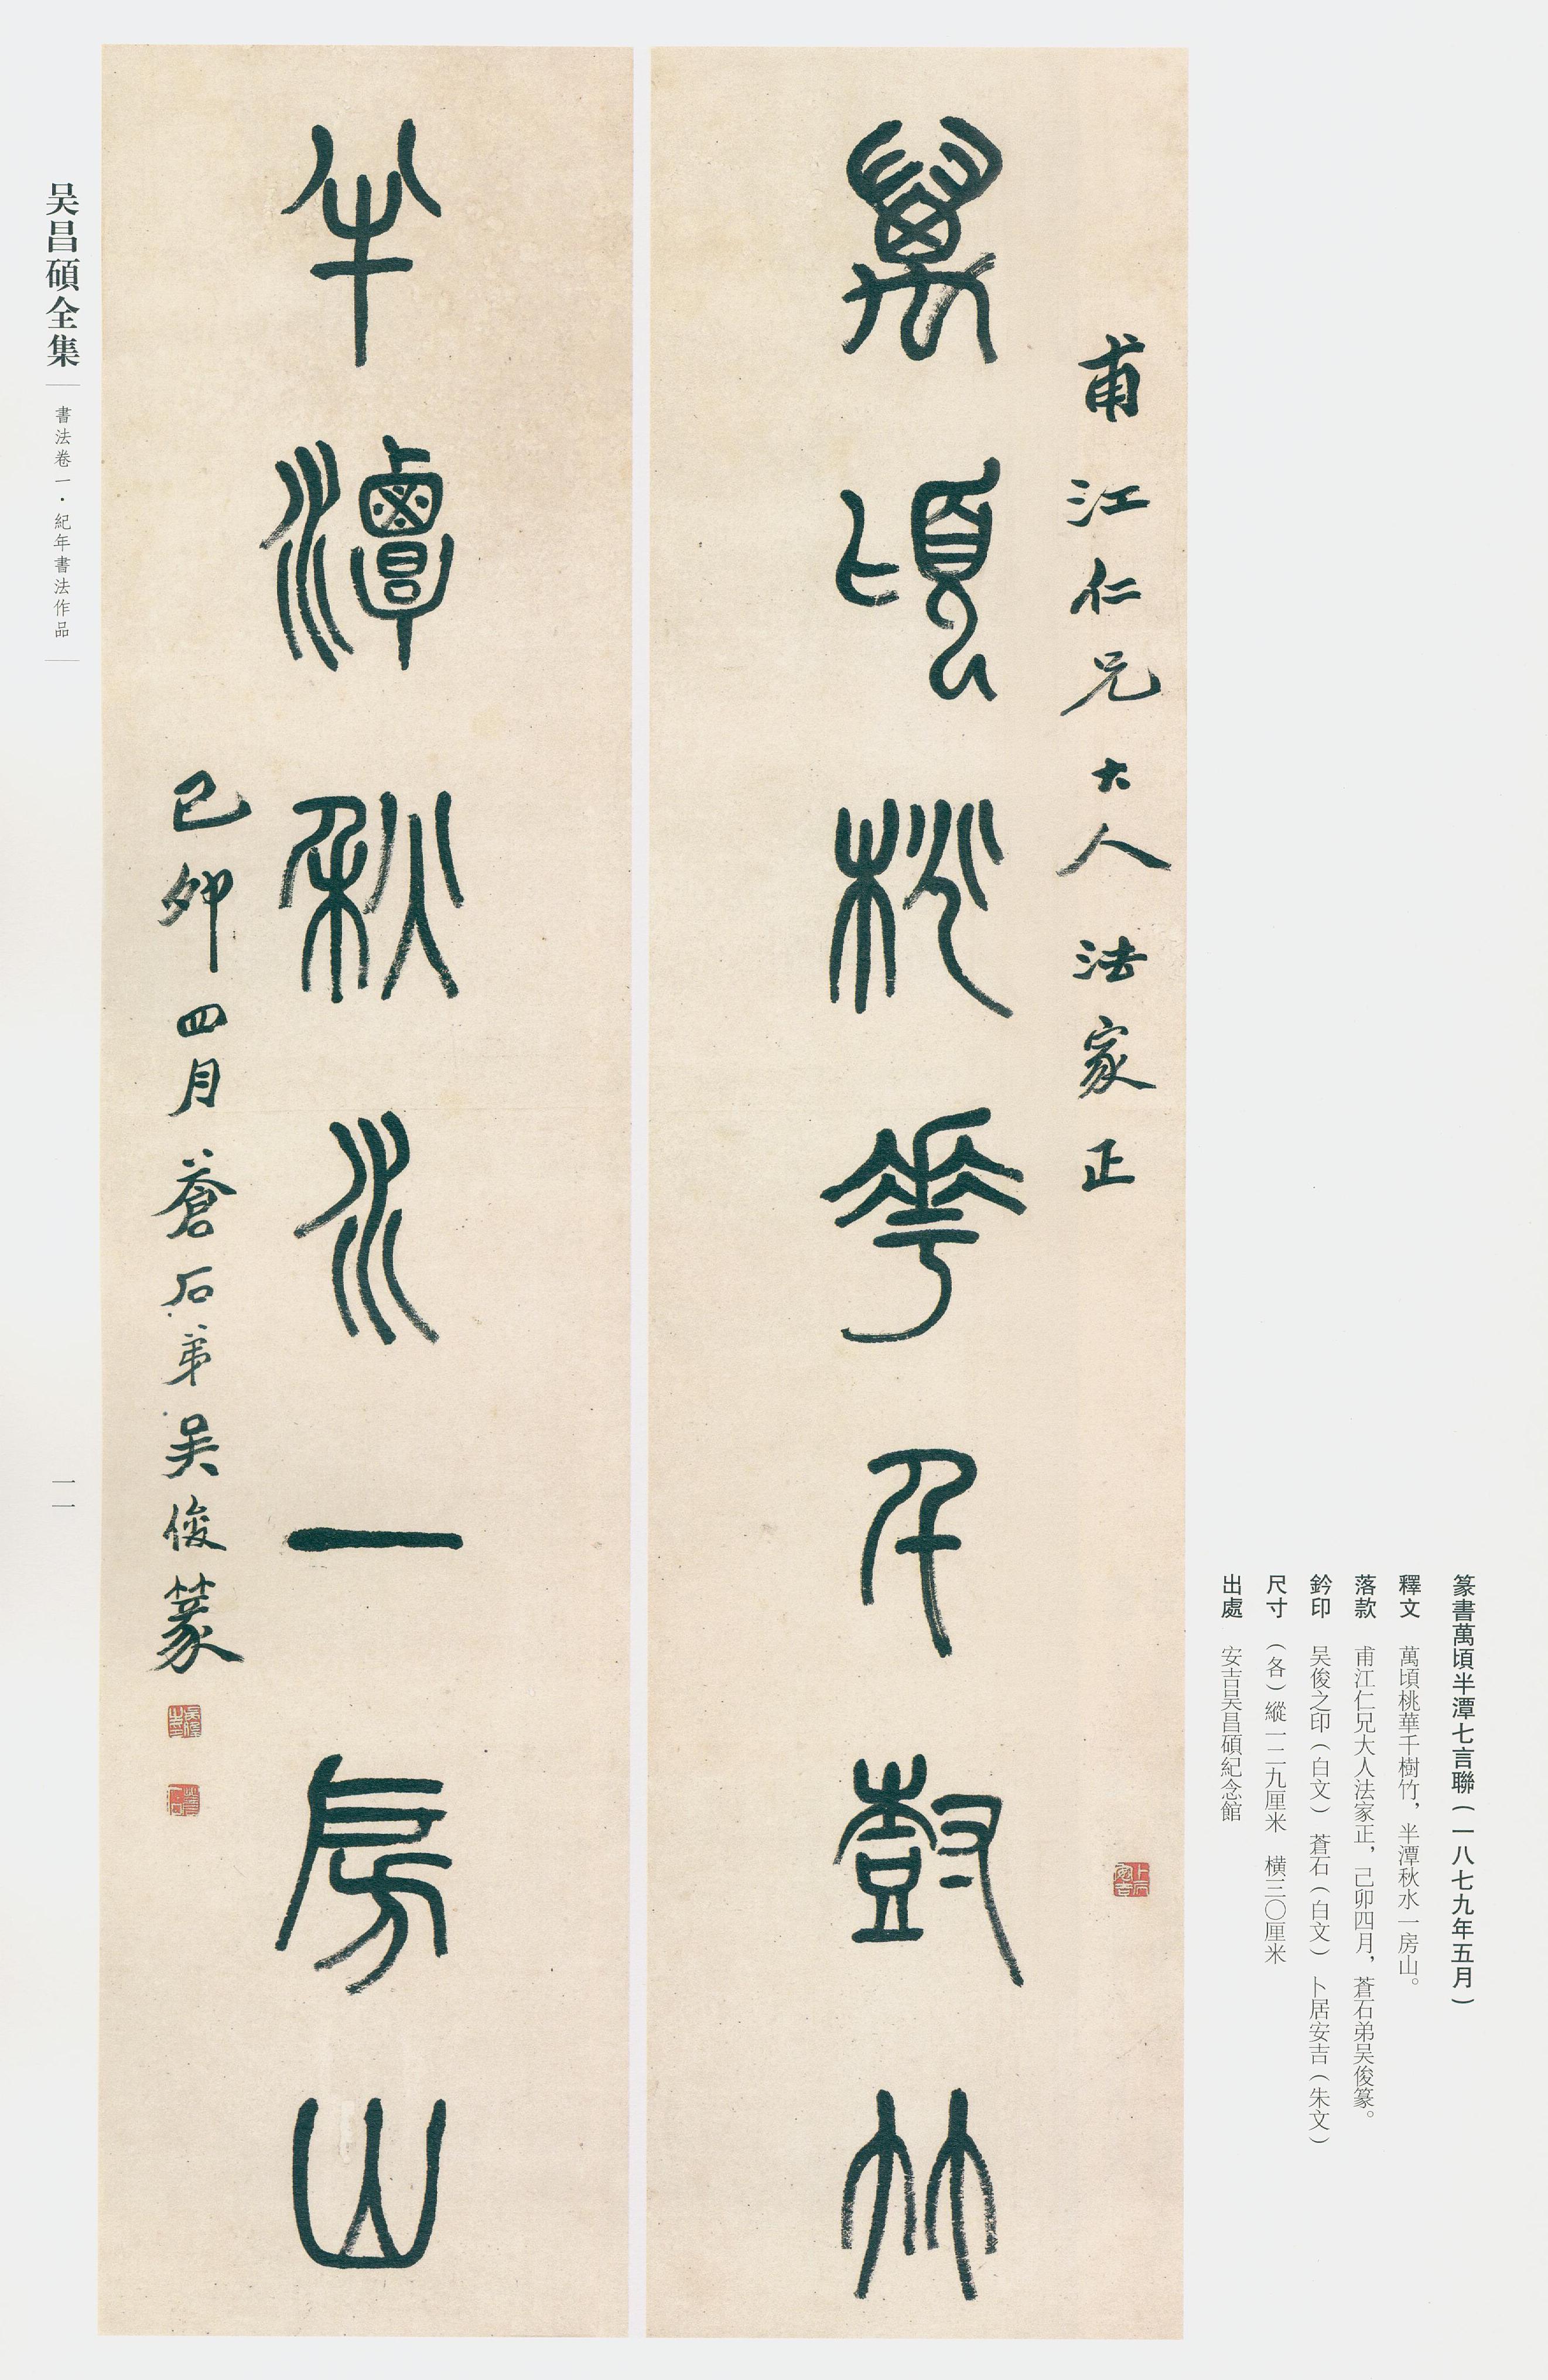 甫江仁兄大人法家正
萬頃桃華千樹竹
半潭秋水一房山
己卯四月蒼石弟吴俊篆
吴俊之印
蒼石
卜居安吉
篆書萬頃半潭七言聯(一八七九年五月)
釋文 萬頃桃華千樹竹,半潭秋水一房山。
落款 甫江仁兄大人法家正,己卯四月,蒼石弟吴俊篆。
鈐印 吴俊之印(白文) 蒼石(白文) 卜居安吉(朱文)
尺寸 (各)縱一二九厘米 橫三〇厘米
出處 安吉吴昌碩紀念館
吴昌碩全集
書法卷一·紀年書法作品
一一